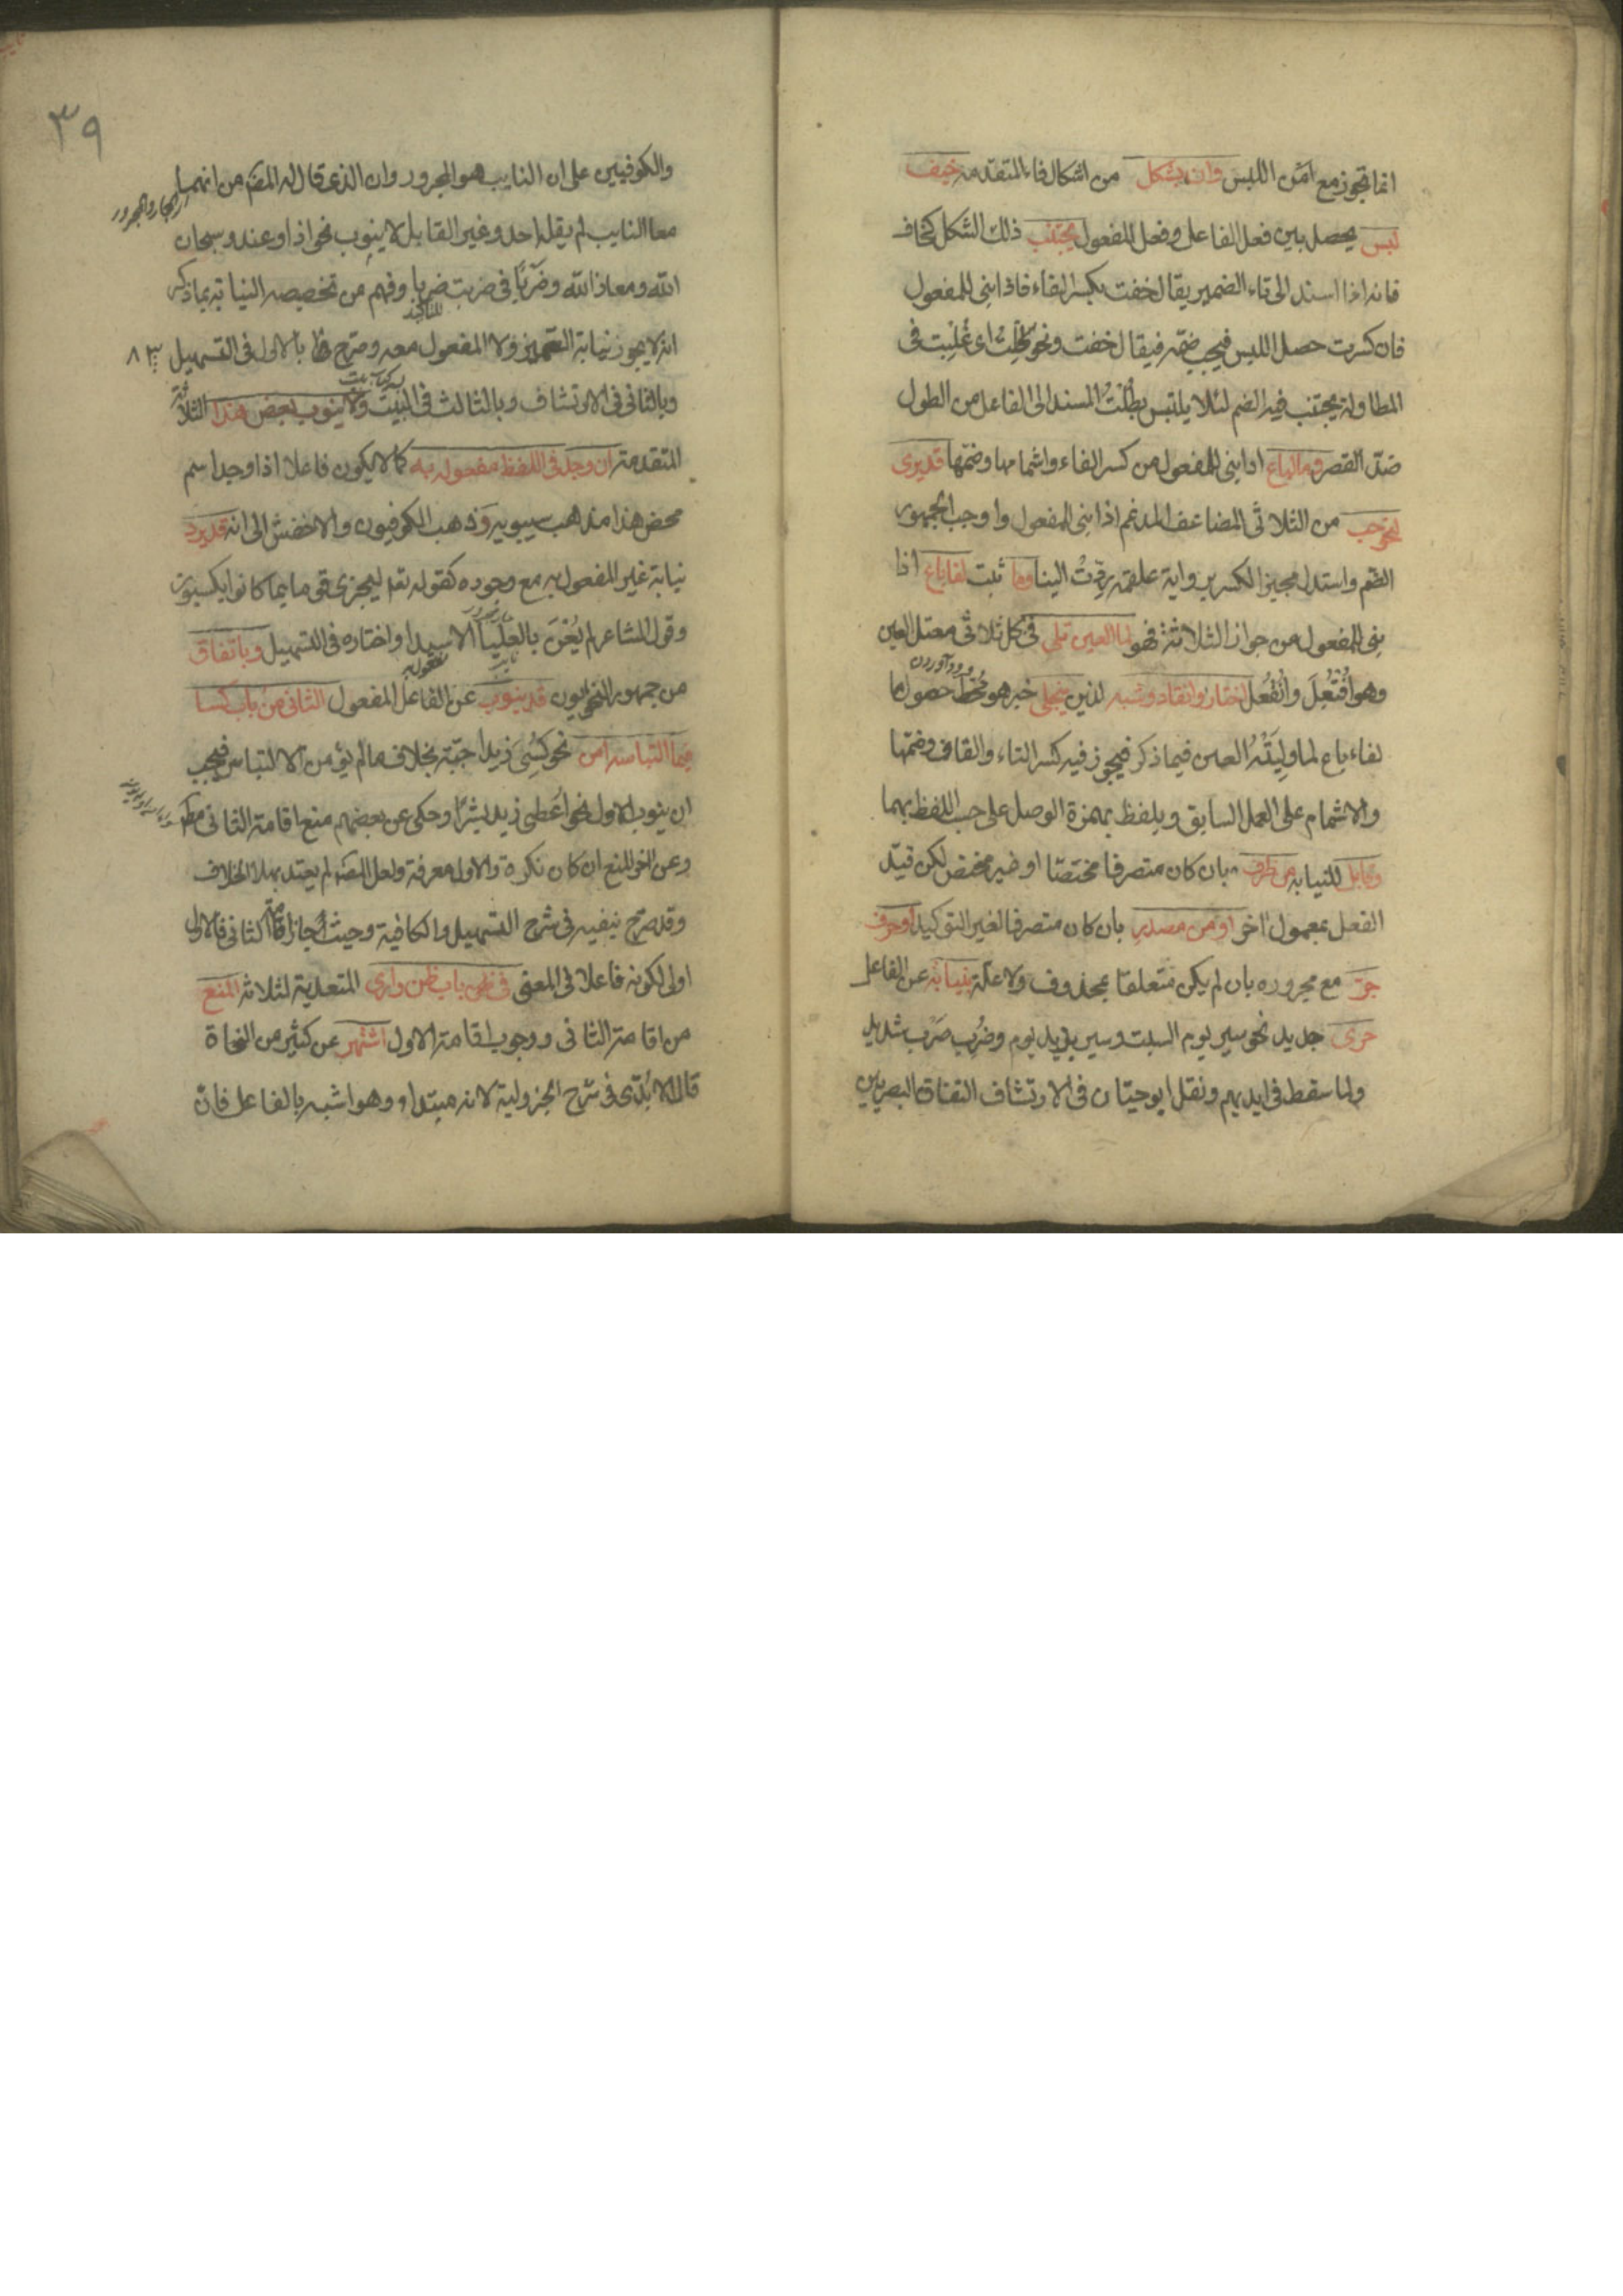 انما تجوز مع امن اللبس وان بشكل من اشكال فاء المتقدمة خيف
لبس يحصل بين فعل الفاعل وفعل المفعول يجتنب ذلك الشكل كخاف
فانه اذا اسند الى تاء الضمير يقال خفت بكسر الفاء فاذا بنى للمفعول
فان كسرت حصل اللبس فيجب ضمه فيقال خفت ونحو طلت اى غلبت فى
المطاولة يجتنب فيه الضم لئلا يلتبس بطلت المسند الى الفاعل من الطول
ضد القصر وما لباع اذا بنى للمفعول من كسر الفاء واشمامها وضمها قد يرى
لنحو حب من الثلاثى المضاعف المدغم اذا بنى للمفعول واوجب الجمهور
الضم واستدل مجيز الكسر برواية علقمة ردت الينا وما ثبت لفا باع اذا
بنى للمفعول من جواز الثلاثة فهو لما العين تلى فى كل ثلاثى معتل العين
وهو افتعل وانفعل اختار وانقاد وشبه لذين ينجلى خبر هو حصول ما
لفاء باع لما وليته العين فيما ذكر فيجوز فيه كسر التاء والقاف وضمها
والاشمام على العمل السابق ويلفظ بهمزة الوصل على حسب اللفظ بهما
وقابل للنيابة من ظرف بان كان متصرفا مختصا او غير مختص لكن قيد
الفعل بمعمول اخر او من مصدر بان كان متصرفا لغير التوكيد او حرف
جر مع مجروره بان لم يكن متعلقا بمحذوف ولا علة بنيابة عن الفاعل
حرى جدير نحو سير يوم السبت وسير بزيد يوم وضرب ضرب شديد
ولما سقط فى ايديهم ونقل ابو حيان فى الارتشاف اتفاق البصريين
٣٩
والكوفيين على ان النايب هو المجرور وان الذى قاله المصنف من انهما
الجار والمجرور
معا النايب لم يقله احد وغير القابل لا ينوب نحو اذا وعند وسبحان
الله ومعاذ الله وضربا فى ضربت ضربا وفهم من تخصيصه النيابة بما ذكر
للتاكيد
انه لا يجوز نيابة التمييز ولا المفعول معه وصرح بالاول فى التسهيل
وبالثانى فى الارتشاف وبالثالث فى البيت ولا ينوب بعض هذا الثلاثة
المتقدمة ان وجد فى اللفظ مفعول به كما لا يكون فاعلا اذا وجد اسم
محض هذا مذهب سيبويه وذهب الكوفيون والاخفش الى انه قد يرد
نيابة غير المفعول به مع وجوده كقوله تعا ليجزى قوما بما كانوا يكسبون
وقول الشاعر لم يعن بالعلياء الا سيدا واختاره فى التسهيل وباتفاق
من جمهور النحويون قد ينوب عن الفاعل المفعول الثانى من باب كسا
فيما التباسه امن نحو كسى زيدا جبة بخلاف ما لم يؤمن الالتباس فيجب
ان ينوب الاول نحو اعطى زيد بشرا وحكى عن بعضهم منع اقامة الثانى مطلقا
وعن اخر المنع ان كان نكرة والاول معرفة ولعل المصنف لم يعتد بهذا الخلاف
وقد صرح بنفيه فى شرح التسهيل والكافية وحيث اجاز اقامة الثانى فالاول
اولى لكونه فاعلا فى المعنى فى باب ظن وارى المتعدية لثلاثة المنع
من اقامة الثانى ووجوب اقامة الاول اشتهر عن كثير من النحاة
قال الابدى فى شرح الجزولية لانه مبتداء وهو اشبه بالفاعل فان